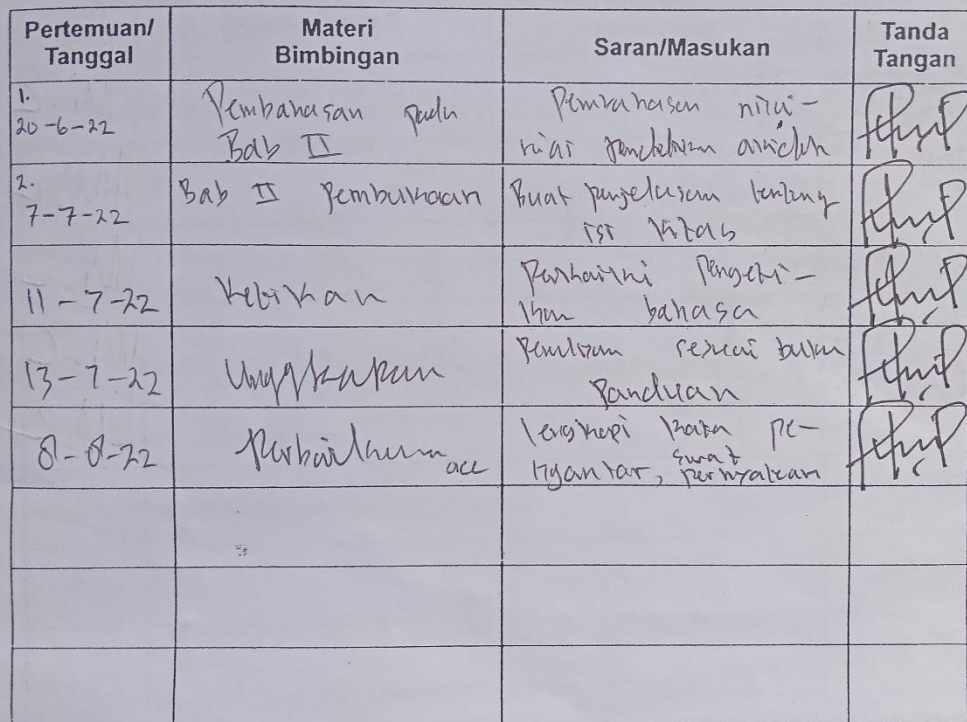 Pertemuan/ Tanggal
Materi Bimbingan
Saran/Masukan
Tanda Tangan
1.
20-6-22
Pembahasan pada
Bab II
Pembahasan nilai-
nilai pendidikan
2.
7-7-22
Bab II Pembukaan
Buat penjelasan tentang
isi kitab
11-7-22
Perbaiki
bahasa
13-7-22
Penulisan sesuai buku
Panduan
8-8-22
acc
lengkapi kata pe-
ngantar, surat
pernyataan